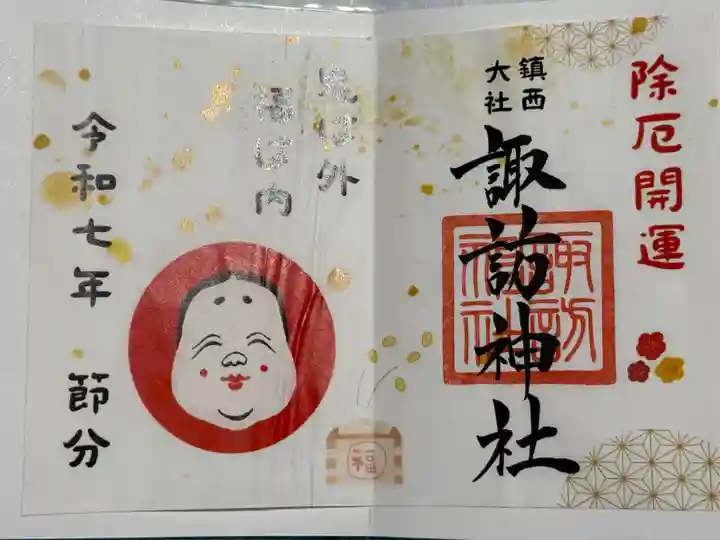 除厄開運
鎮西
大社
諏訪神社
諏訪
神社
鬼は外
福は内
令和七年 節分
福